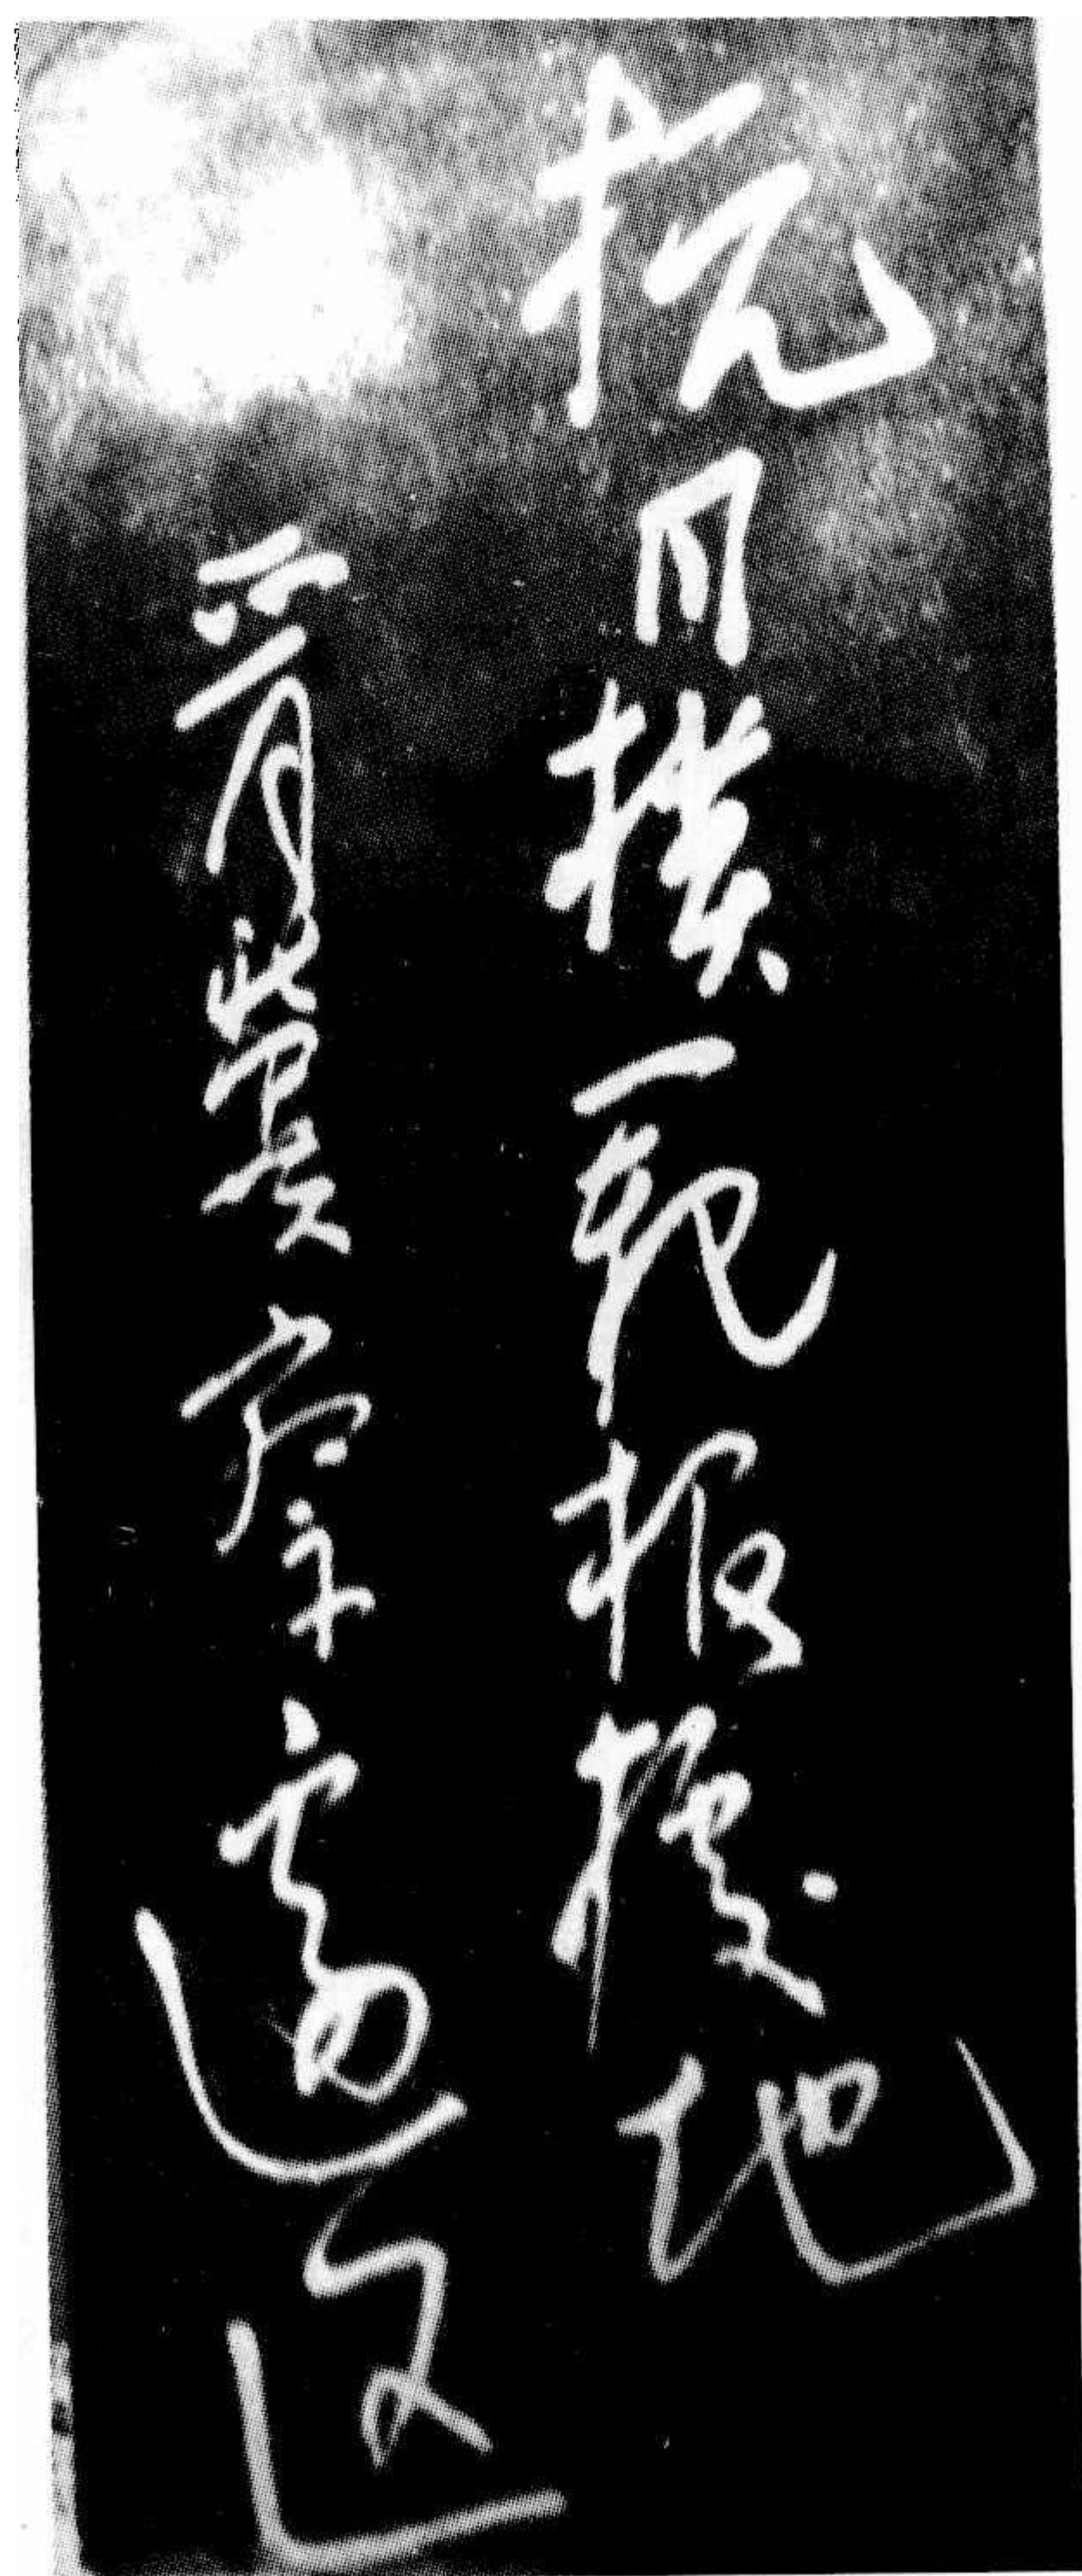 抗日模範根據地
晉冀察邊區